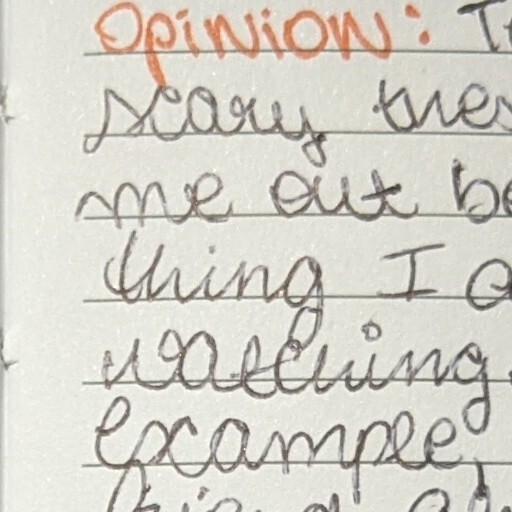 Opinion:
scary
me out
thing I
watching
example,